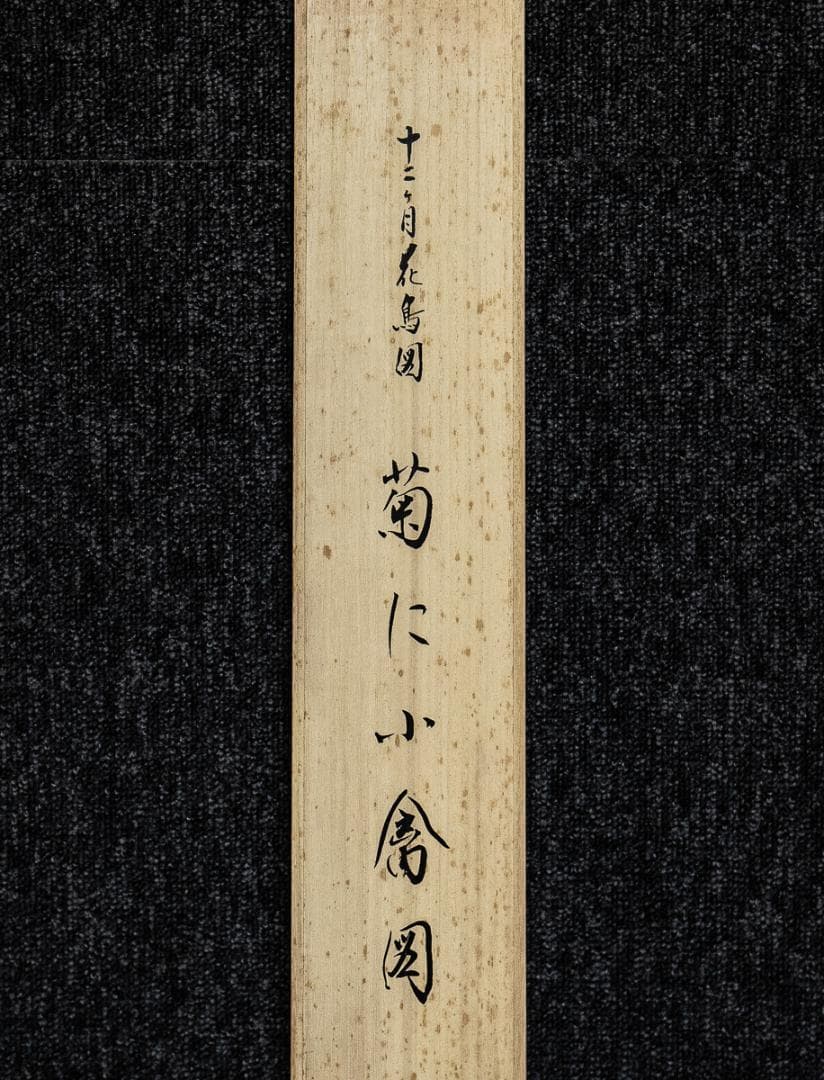 十二ヶ月花鳥図
菊に小禽図